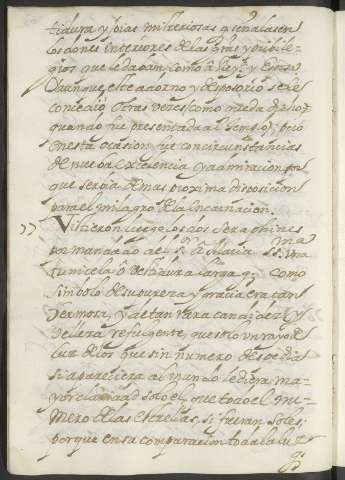 tidura y joias misteriosas q̃ señalasen
los dones interiores de las gras y privile-
gios que le davan como a Reyna y Esposa
Y aunque este adorno y desposorio se le
concedio otras veces como queda dicho
quando fue presentada al templo; pero
en esta ocasion fue con circunstancias
de nueva excelencia y admiracion por
que servia de mas proxima disposicion
para el milagro de la Encarnacion.
Vistieron luego los dos serafines
por mandado del S.r a Maria SS.ma una
tunicela o vestidura larga q̃ como
simbolo de su pureza y gracia era tan
hermosa, y de tan rara candidez y
belleza refulgente, que solo un rayo de
luz de los que sin numero despedia
si apareciera al mundo le diera ma-
yor claridad solo el, que todo el nu-
mero de las estrellas, si fueran soles;
porque en su comparacion toda la luz